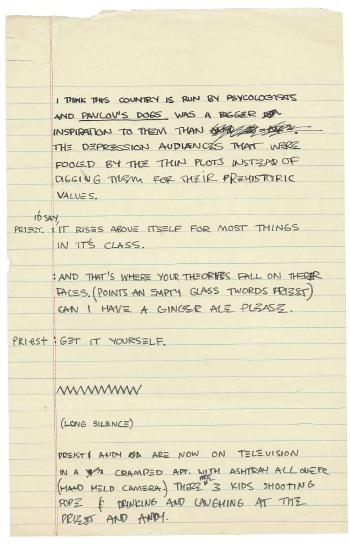 I THINK THIS COUNTRY IS RUN BY PSYCOLOGISTS
AND PAVLOV'S DOGS WAS A BIGGER
INSPIRATION TO THEM THAN
THE DEPRESSION AUDIANCES THAT WERE
FOOLED BY THE THIN PLOTS INSTEAD OF
DIGGING THEM FOR THEIR PREHISTORIC
VALUES.
I'D SAY,
PRIEST. : IT RISES ABOVE ITSELF FOR MOST THINGS
IN IT'S CLASS.
: AND THAT'S WHERE YOUR THEORIES FALL ON THEIR
FACES. (POINTS AN EMPTY GLASS TWORDS PRIEST)
CAN I HAVE A GINGER ALE PLEASE.
PRIEST : GET IT YOURSELF.
(LONG SILENCE)
PREIST & ANDY ARE NOW ON TELEVISION
IN A CRAMPED APT. WITH ASHTRAY ALL OVER
(HAND HELD CAMERA) THERE 3 KIDS SHOOTING
POPE & DRINKING AND LAUGHING AT THE
PRIEST AND ANDY.